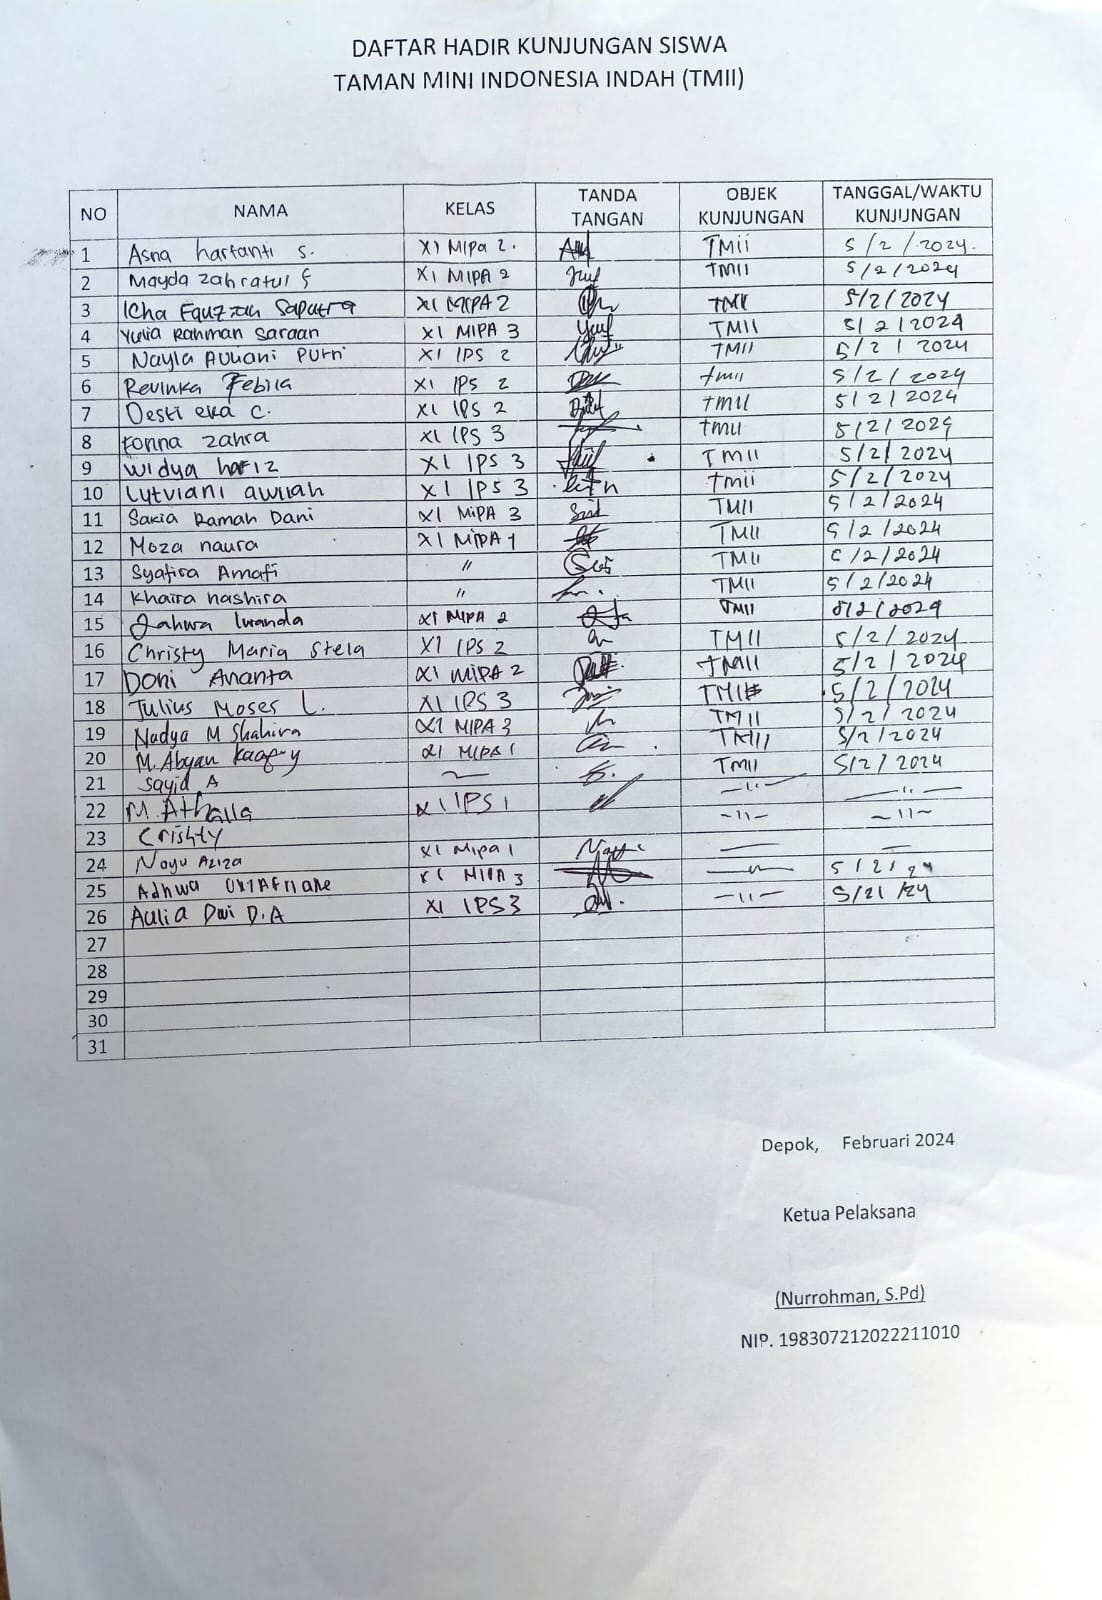 DAFTAR HADIR KUNJUNGAN SISWA
TAMAN MINI INDONESIA INDAH (TMII)
NO NAMA KELAS TANDA TANGAN OBJEK KUNJUNGAN TANGGAL/WAKTU KUNJUNGAN
1 Asna hartanti s. XI Mipa 2. TMii 5/2/2024.
2 Mayda zahratul XI MIPA 2 TMII 5/2/2024
3 Icha Fauzzan Saputra XI MIPA 2 TMII 5/2/2024
4 Yunia Rahman saraan XI MIPA 3 TMII 5/2/2024
5 Nayla Auliani Putri XI IPS 2 TMII 5/2/2024
6 Revinka Febila XI IPS 2 tmii 5/2/2024
7 Desti eka c. XI IPS 2 tmii 5/2/2024
8 zahra XI IPS 3 tmii 5/2/2024
9 widya hafiz XI IPS 3 TMII 5/2/2024
10 Lutviani awliah XI IPS 3 tmii 5/2/2024
11 Sakia Ramah Dani XI MIPA 3 TMII 5/2/2024
12 Moza naura XI MIPA 1 TMII 5/2/2024
13 Syafira Amafi " TMII 5/2/2024
14 Khaira nashira " TMII 5/2/2024
15 Zahwa Iwanda XI MIPA 2 TMII 5/2/2024
16 Christy Maria Stela XI IPS 2 TMII 5/2/2024
17 Doni Ananta XI MIPA 2 TMII 5/2/2024
18 Julius Moses L. XI IPS 3 TMII 5/2/2024
19 Nadya M Shahira XI MIPA 3 TMII 5/2/2024
20 M. Abyan XI MIPA 1 TMII 5/2/2024
21 Sayid A TMII 5/2/2024
22 M. Athalla XI IPS 1 -"- -"-
23 Crishty -"- -"-
24 Nayu Aziza XI Mipa 1
25 Adhwa XI MIPA 3 5/2/24
26 Aulia Dwi D.A XI IPS 3 -"- 5/21/24
27
28
29
30
31
Depok, Februari 2024
Ketua Pelaksana
(Nurrohman, S.Pd)
NIP. 198307212022211010